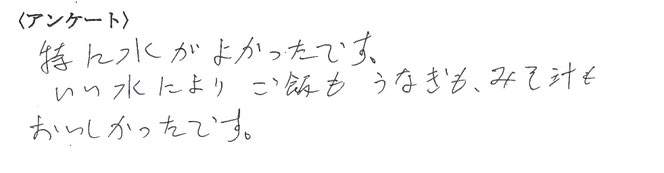 〈アンケート〉
特に水がよかったです。
いい水により ご飯も うなぎも、みそ汁も
おいしかったです。